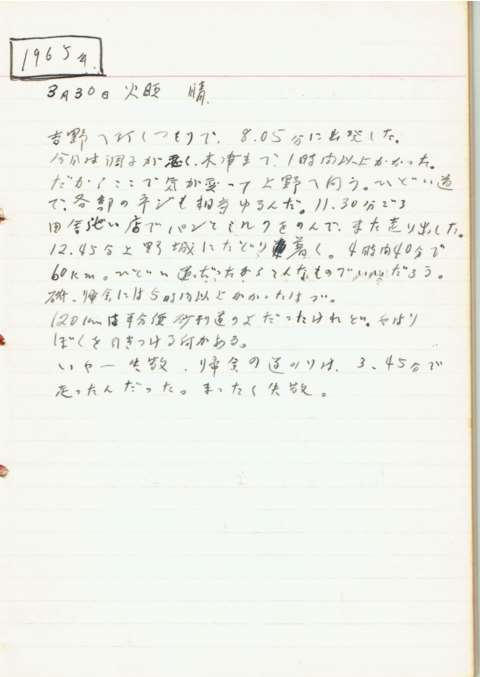 1965年.
3月30日 火曜 晴.
吉野へ行くつもりで、8.05分に出発した。
今日は調子が悪く、木津まで、1時間以上かかった。
だから、ここで気が変って上野へ向う。ひどい道
で、各部のネジも相当ゆるんだ。11.30分ごろ
田舎 店でパンとミルクをのんで、また走り出した。
12.45分上野城にたどり着く。4時間40分で
60km。ひどい道だったからそんなものでいいだろう。
帰金には5時間以上かかったはづ。
120kmは 砂利道 だったけれど。やはり
ぼくを引きつける何かがある。
いやー失敗、帰金の道のりは、3.45分で
走ったんだった。まったく失敗。